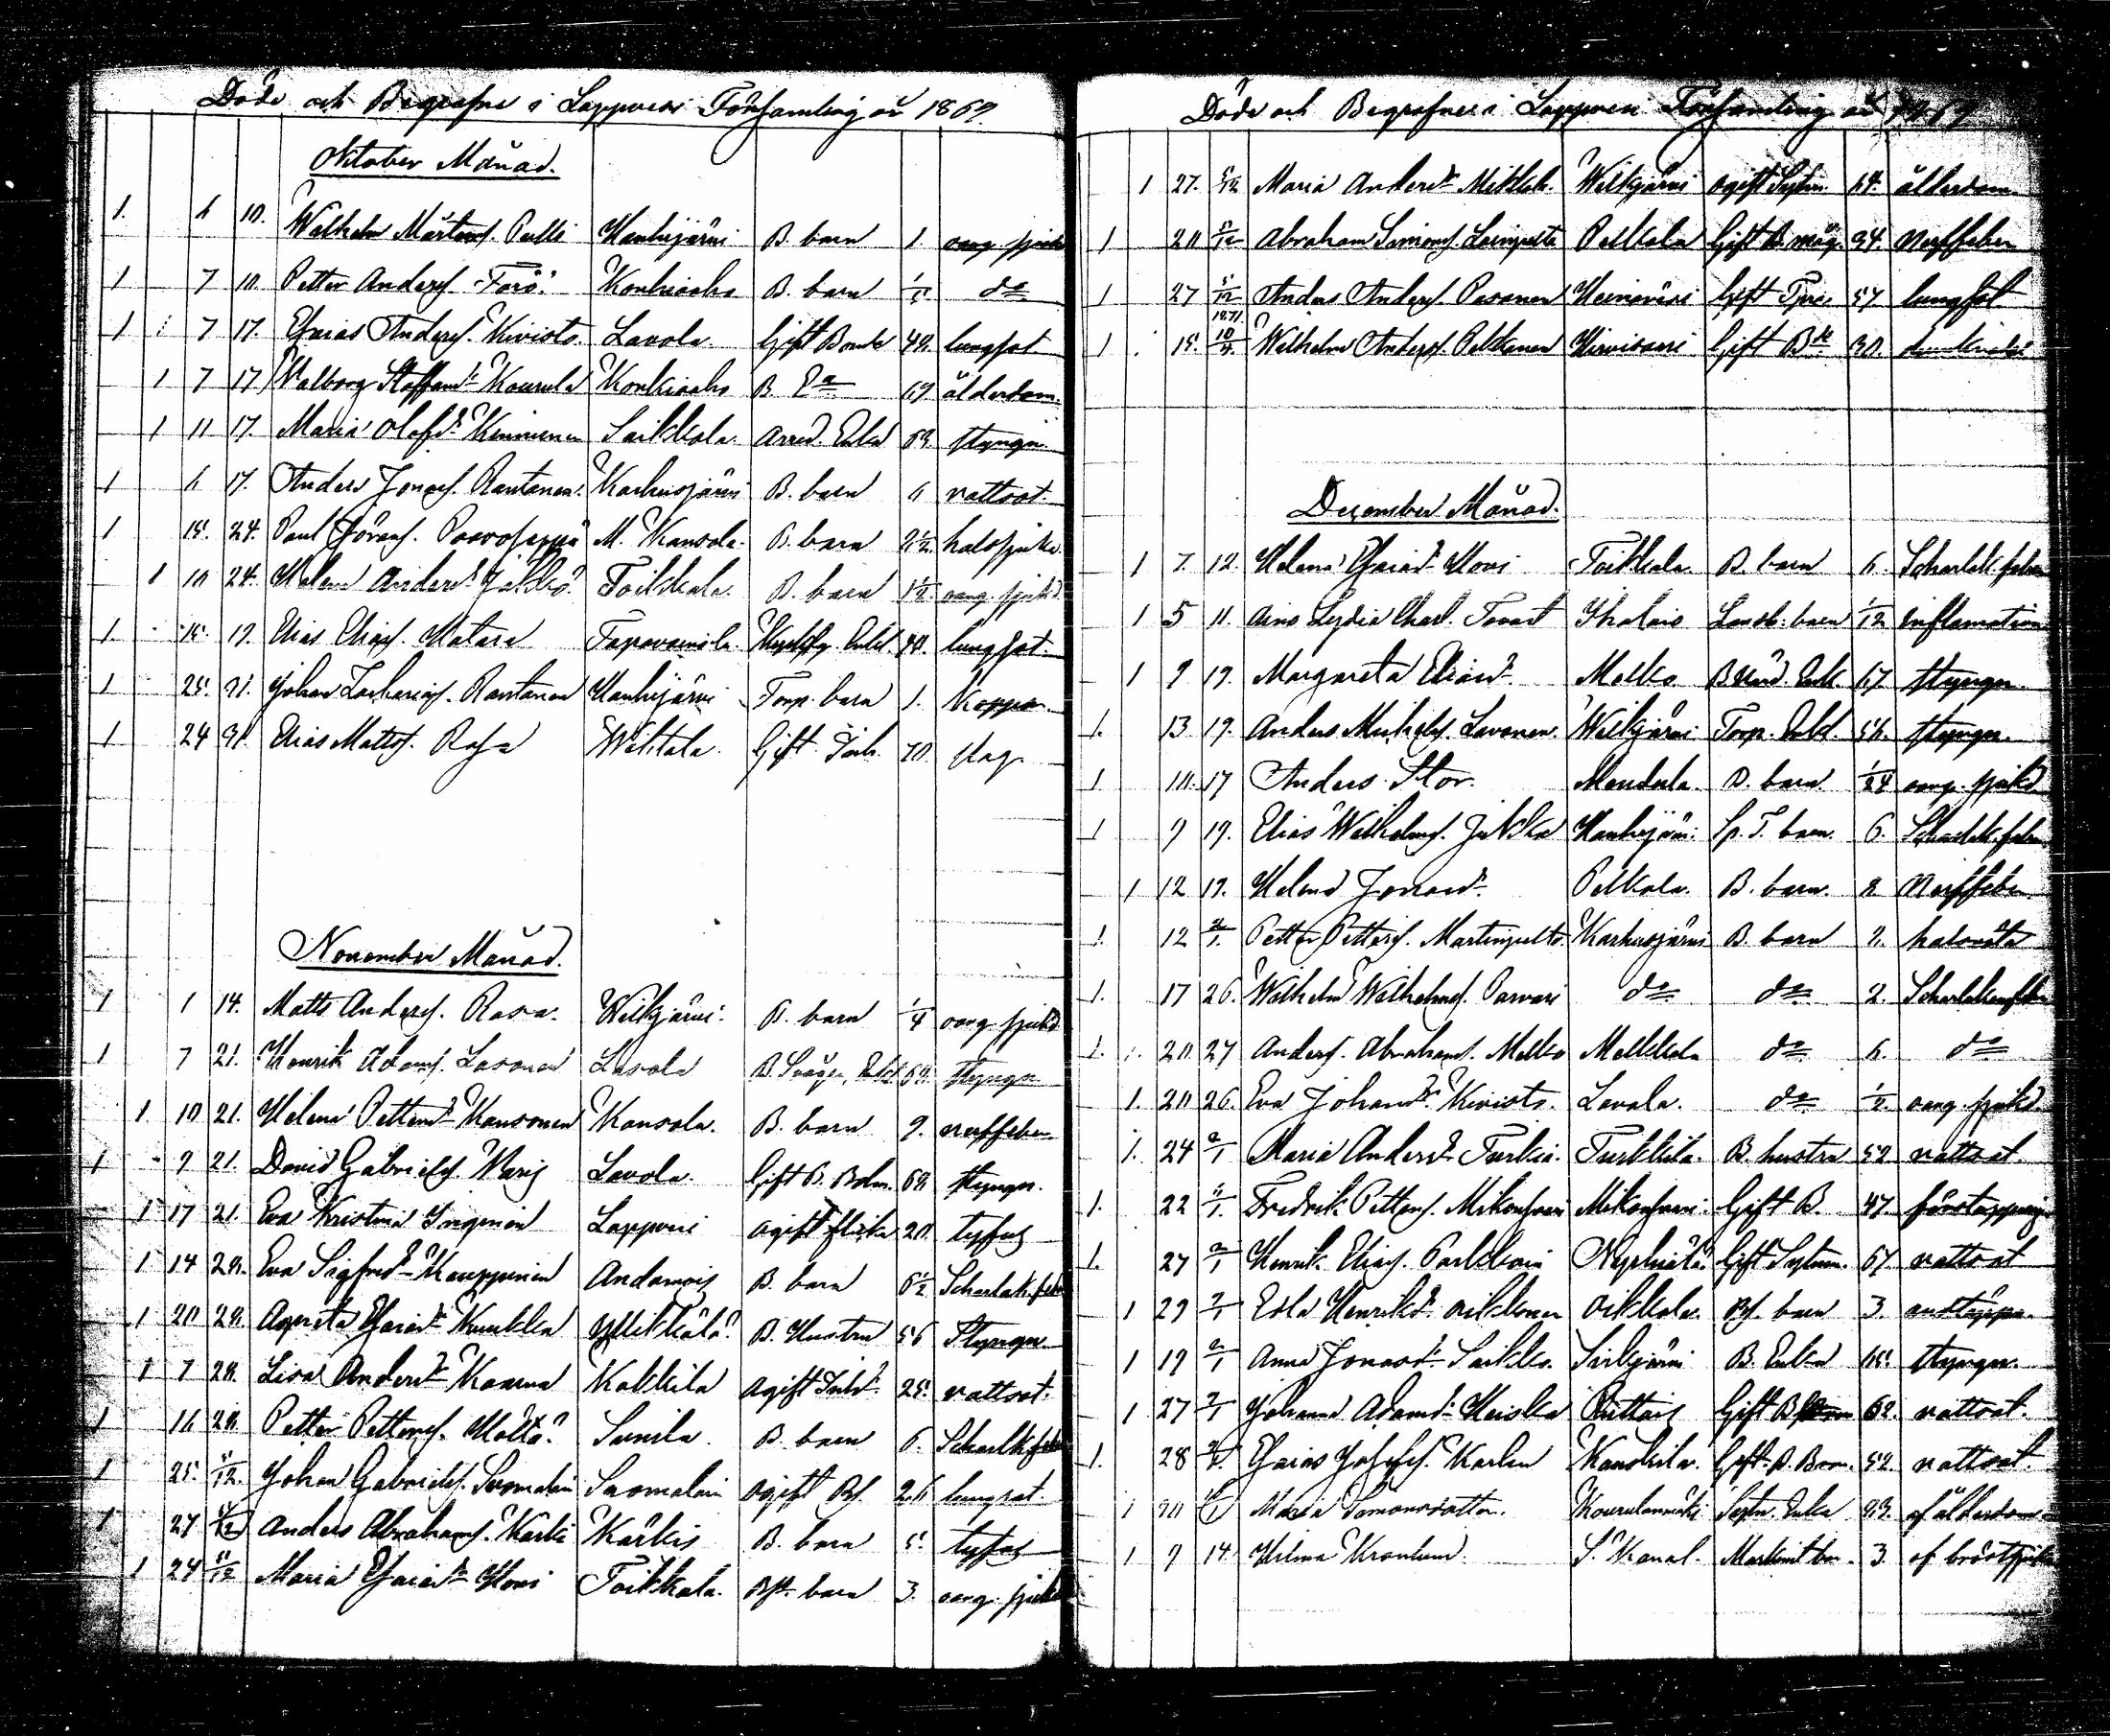 Döde och Begrafne i Lappvesi Församling år 1869.
Oktober Månad.
1. 6 10. Wilhelm Mårtens. Pulli Hanhijärvi B. barn 1. oang. sjukd
1 7 10. Petter Anders. Korkiaaho B. barn do
1 7 17. Esaias Anders. Kivisto. Lavola. Gift Bonde 49. lungsot
1 7 17 Walborg Staffansdr Kourula Korkiaaho B. Ea 69 ålderdom.
1 11 17. Maria Olofsdr Kinnunen Saikkola. Arrend. Enka 63. styngn.
1 6 17. Anders Jonas. Rantanen. Karhusjärvi B. barn 6 vattsot.
1 15. 24. Paul Görans. M. Kansola. B. barn 2½ halssjuka.
1 10 24. Helena Andersdr Jälkö. Toikkala. B. barn 1½ oang. sjukd.
1. 15. 19. Elias Elias. Matara Tapavainola. Enkl. 40. lungsot.
1 25. 31. Johan Zacharias. Rantanen Hanhijärvi Torp. barn 1. Koppor.
1 24 31. Elias Matts. Rasa Wiktala. Gift Inh. 70. slag
November Månad.
1 1 14. Matts Anders. Rasa. Wilkjärvi. B. barn ¼ oang. sjukd
1 7 21. Henrik Adams. Lavonen Lavola B. Svåger, Enkl. styngn
1. 10 21. Helena Pettersdr Kansonen Kansola. B. barn 9. nerffeber
1 9 21. David Gabriels. Waris Lavola. Gift B. Bolm. styngn.
1 17 21. Eva Kristina Inginen Lappvesi ogift flicka 20 tyfus
1 14 28. Eva Sigfridsdr Kauppinen Andamois B. barn 6½ Scharlak.feber
1 20 28. Agneta Esaiasdr Kunkka B. Hustru 56 Styngn.
1 7 28. Lisa Andersdr Kaarna Kakkila ogift Inhdr. 25. vattsot.
1 16 28. Petter Petters. Mältä. Sunila. B. barn 6. Scharlk.feber
1 25. 5/12. Johan Gabriels. Suomalain Suomalain ogift Bs. 26 lungsot.
1 27 5/12 Anders Abrahams. Kärki Kärkis B. barn 5. tyfus
1 24 5/12 Maria Esaiasdr Hovi Toikkala. Bss. barn 3. oang. sjukd
Döde och Begrafne i Lappvesi Församling år 1869
1 27. 5/12 Maria Andersdr Wilkjärvi ogift Sytn. 64. ålderdom.
1 20 5/12 Abraham Simons. Lempelto Pelkola Gift B. måg. 34. Nerffeber
1 27 5/12 Anders Anders. Pasanen Heinävesi Gift 57 lungsot
1871.
1. 15. Wilhelm Anders. Pekkanen Hirvisaari Gift Bde 30.
December Månad.
1 7. 12. Helena Esaiasdr Hovi Toikkala. B. barn 6. Scharlak.feber
1 5 11. Aino Lydia Charl. Ihalais barn 1/12 Inflamation
1 9 19. Margareta Eliasdr. Melko B. Enk. 67. Styngn.
1. 13 19. Anders Michels. Lavonen. Wilkjärvi Torp. Enkl. 56. styngn.
1 10. 17 Anders Stor. Mondula. B. barn. 1/24 oang. sjukd
1 9 19. Elias Wilhelms. Jukka Hanhijärvi. Sp. T. barn. 6. Scharlak.feber
1 12 19. Helena Jonasdr. Pelkola. B. barn. 8. Nerffeber
1. 12 2/1. Petter Petters. Martinpelto Karhusjärvi B. barn 2.
1. 17 26. Wilhelm Wilhelms. Parvari do do 2. Scharlakansfeber
1. 20 27 Anders. Abrahams. Melko Melkkola do 6. do
1. 20 26. Eva Johansdr Kivisto. Lavola. do ½. oang. sjukd.
1. 24 2/1 Maria Andersdr Turkia. Turkkila. B. hustru 52 vattsot.
1. 22 Fredrik Petters. Mikonsaari Mikonsaari Gift B. 47. förstoppning
1. 27 2/1 Henrik Elias. Parkkari Gift Sytnm. 67. vattsot
1 29 2/1 Eola Henriksdr. Oikkonen Oikkola. Bs. barn 3. andtäppa.
1 19 2/1 Anna Jonasdr Saikko. Sirkjärvi B. Enka 65. styngn.
1 27 2/1 Johanna Adamsdr Heiska Ruttais Gift B 62. vattsot.
1. 28 2/1. Esaias Josefs. Karlen Kauskila. Gift B. Bror. 52. vattsot.
1 30 Maria Simonsdotter. Kourulanmäki Sytn. Enka 93. af ålderdom
1 9 14. Hilma Kranlund. S. Kanal. 3. af bröstsjukd